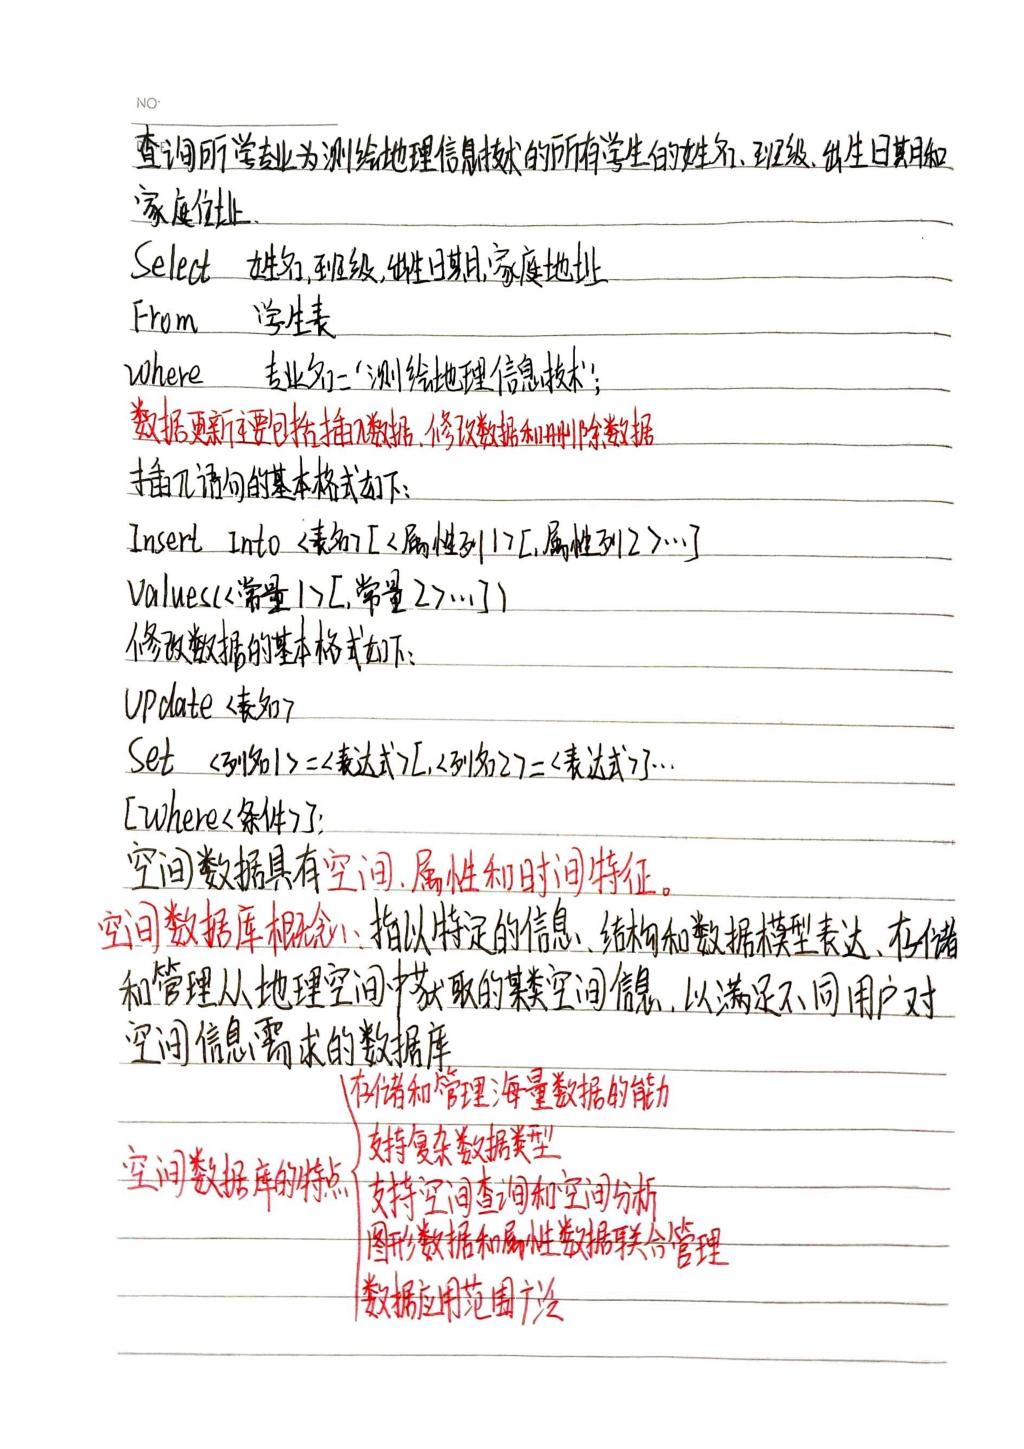 NO·
查询所学专业为测绘地理信息技术的所有学生的姓名、班级、出生日期和
家庭住址.
Select 姓名,班级,出生日期,家庭地址
From 学生表
where 专业名='测绘地理信息技术';
数据更新主要包括插入数据、修改数据和删除数据
插入语句的基本格式如下:
Insert Into <表名>[<属性列1>[,属性列2>…]
Values(<常量1>[,常量2>…])
修改数据的基本格式如下:
Update <表名>
Set <列名1>=<表达式>[,<列名2>=<表达式>]…
[Where<条件>];
空间数据具有空间、属性和时间特征。
空间数据库概念:指以特定的信息、结构和数据模型表达、存储
和管理从地理空间中获取的某类空间信息,以满足不同用户对
空间信息需求的数据库
存储和管理海量数据的能力
支持复杂数据类型
空间数据库的特点
支持空间查询和空间分析
图形数据和属性数据联合管理
数据应用范围广泛